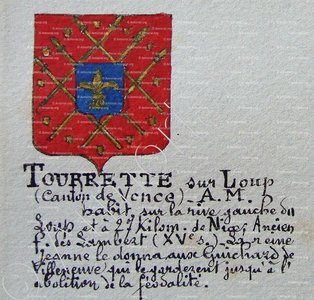 TOURRETTE sur LOUP
(Canton de Vence). A.M.
batit sur la rive gauche du
Loup et à 29 Kilom. de Nice. Ancien
f. des Lambert (XVe s.) La reine
Jeanne le donna aux Guichard de
Villeneuve qui le garderent jusqu'à l'
abolition de la féodalité.